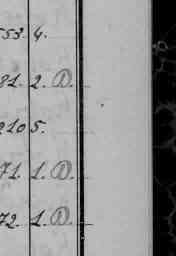 553. 4.
81. 2. D.
210 5.
71. 1. D.
72. 1. D.